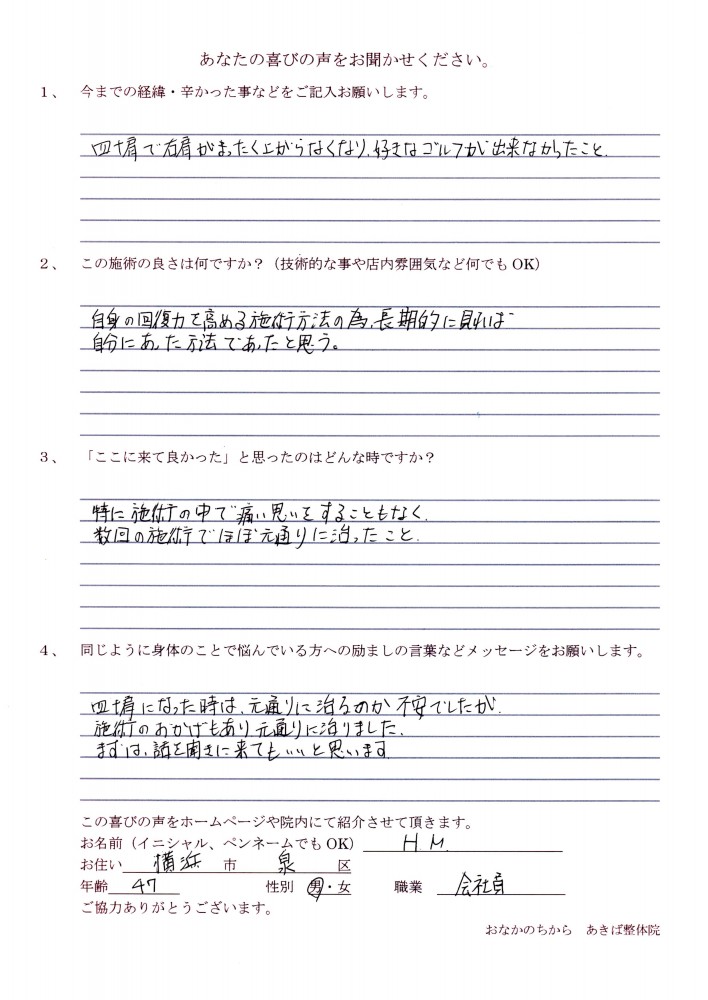 あなたの喜びの声をお聞かせください。
1、 今までの経緯・辛かった事などをご記入お願いします。
四十肩で右肩がまったく上がらなくなり、好きなゴルフが出来なかったこと。
2、 この施術の良さは何ですか？（技術的な事や店内雰囲気など何でも OK）
自身の回復力を高める施術方法の為、長期的に見れば
自分にあった方法であったと思う。
3、 「ここに来て良かった」と思ったのはどんな時ですか？
特に施術の中で痛い思いをすることもなく、
数回の施術でほぼ元通りに治ったこと。
4、 同じように身体のことで悩んでいる方への励ましの言葉などメッセージをお願いします。
四十肩になった時は、元通りに治るのか不安でしたが、
施術のおかげもあり元通りに治りました。
まずは、話を聞きに来てもいいと思います
この喜びの声をホームページや院内にて紹介させて頂きます。
お名前（イニシャル、ペンネームでも OK） H.M.
お住い 横浜 市 泉 区
年齢 47 性別 男・女 職業 会社員
ご協力ありがとうございます。
おなかのちから あきば整体院